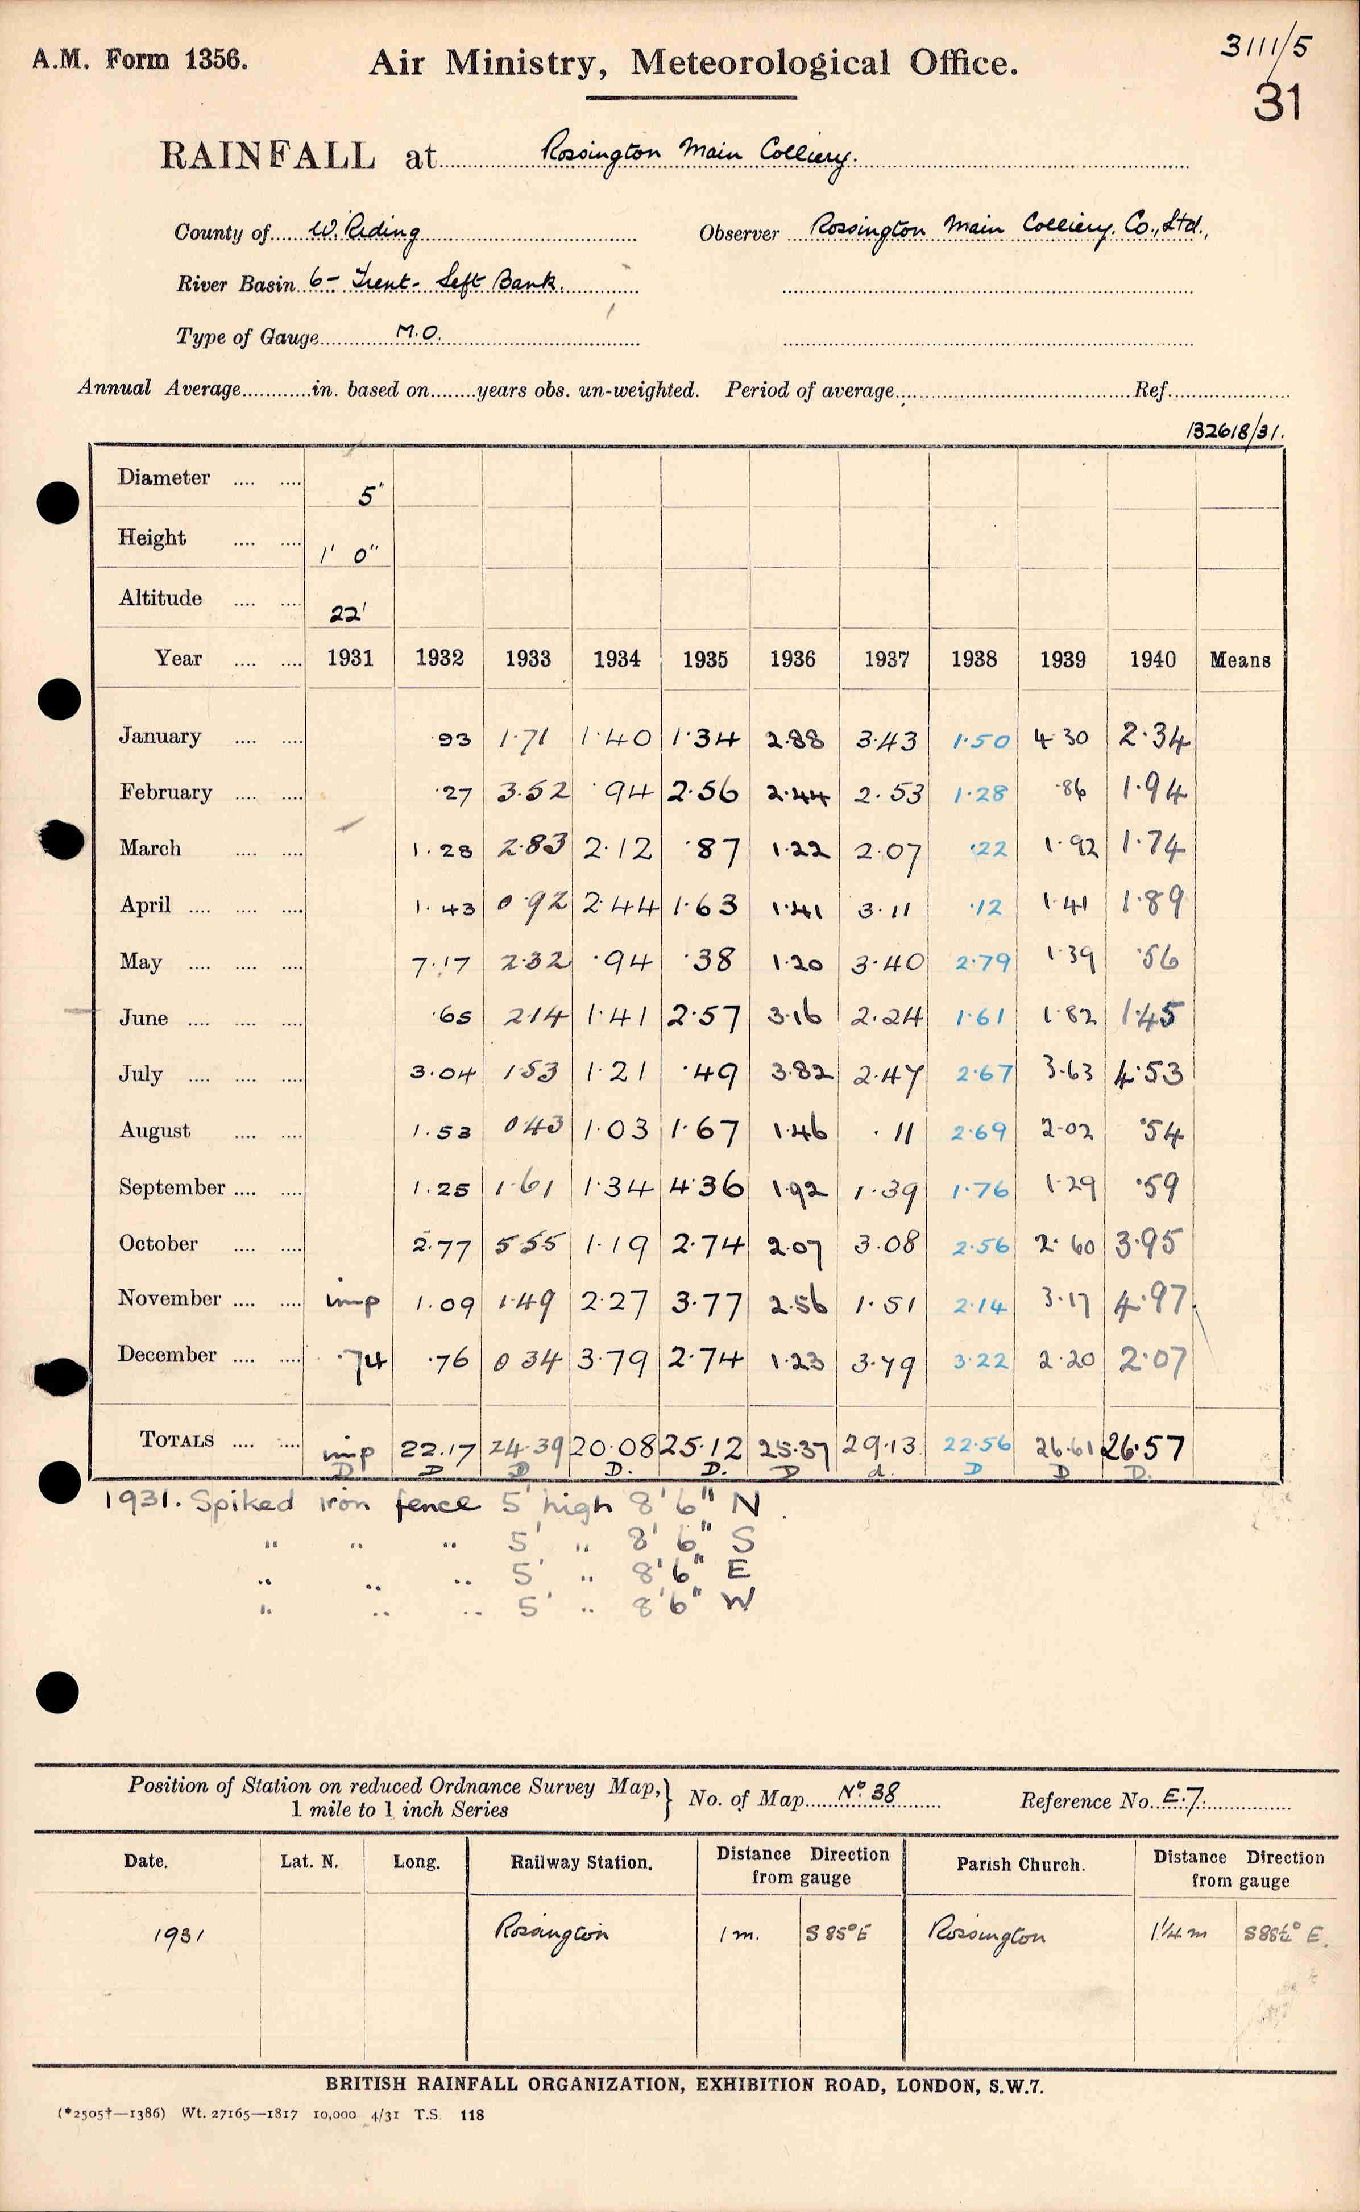 A.M. Form 1356. Air Ministry, Meteorological Office. 3111/5
31
RAINFALL at Rossington Main Colliery.
County of W. Riding Observer Rossington Main Colliery. Co., Ltd.,
River Basin 6- Trent- Left Bank.
Type of Gauge M.O.
Annual Average in. based on years obs. un-weighted. Period of average Ref.
132618/31.
Diameter 5'
Height 1' 0"
Altitude 22'
Year 1931 1932 1933 1934 1935 1936 1937 1938 1939 1940 Means
January ·93 1·71 1·40 1·34 2·88 3·43 1·50 4 30 2·34
February ·27 3·52 ·94 2·56 2·44 2·53 1·28 ·86 1·94
March 1.28 2·83 2·12 ·87 1·22 2·07 ·22 1·92 1·74
April 1.43 0·92 2·44 1·63 1·41 3·11 ·12 1·41 1·89
May 7·17 2·32 ·94 ·38 1·20 3·40 2·79 1·39 ·56
June ·65 2·14 1·41 2·57 3·16 2·24 1·61 1·82 1·45
July 3.04 1·53 1·21 ·49 3·82 2·47 2·67 3·63 4·53
August 1.53 0 43 1·03 1·67 1·46 ·11 2·69 2·02 ·54
September 1.25 1·61 1·34 4·36 1·92 1·39 1·76 1·29 ·59
October 2·77 5·55 1·19 2·74 2·07 3·08 2·56 2·60 3·95
November imp 1.09 1·49 2·27 3·77 2·56 1·51 2·14 3·17 4·97
December ·74 ·76 0 34 3·79 2·74 1·23 3·79 3·22 2·20 2·07
TOTALS imp 22.17 24·39 20·08 25·12 25·37 29·13 22·56 26·61 26·57
D D D D. D. D d. D D D.
1931. Spiked iron fence 5' high 8' 6" N.
" " " 5' " 8' 6" S
" " " 5' " 8' 6" E
" " " 5' " 8' 6" W
Position of Station on reduced Ordnance Survey Map,} No. of Map No. 38 Reference No. E.7.
1 mile to 1 inch Series
Date. Lat. N. Long. Railway Station. Distance Direction from gauge Parish Church. Distance Direction from gauge
1931 Rossington 1 m. S 85° E Rossington 1¼ m S 88½° E.
BRITISH RAINFALL ORGANIZATION, EXHIBITION ROAD, LONDON, S.W.7.
(*2505†—1386) Wt. 27165—1817 10,000 4/31 T.S. 118